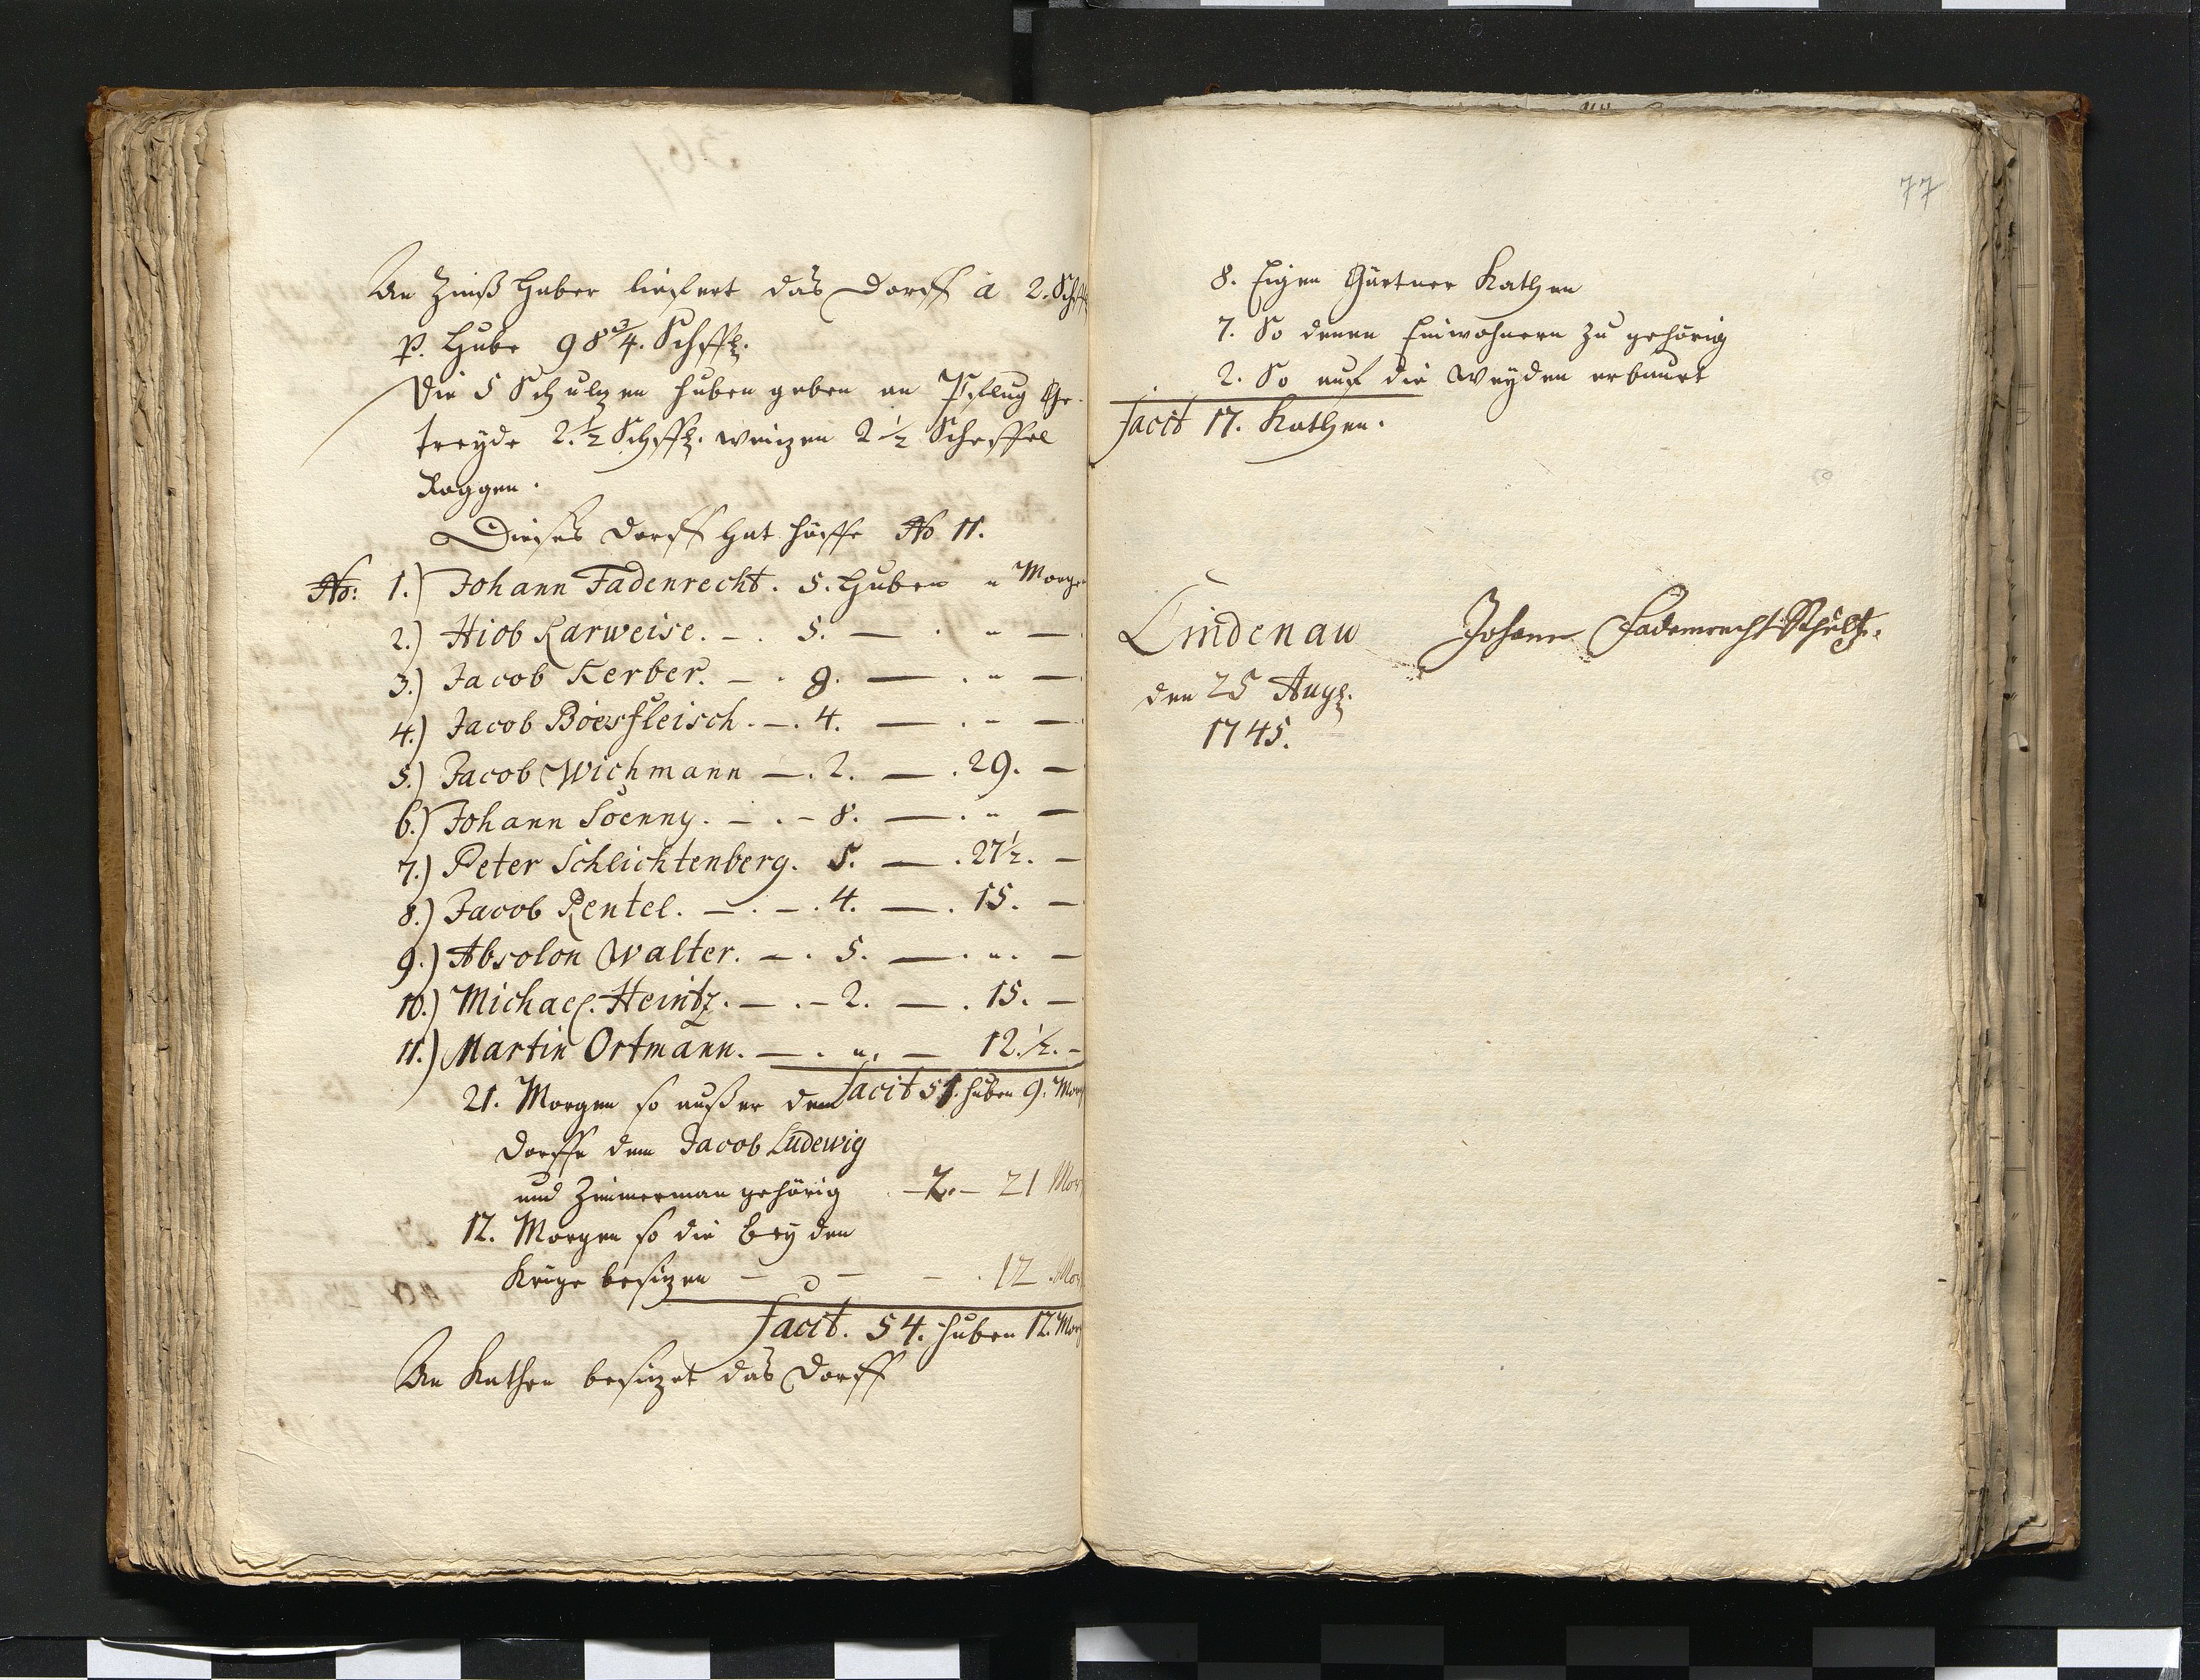 An Zinß Haber liefert das Dorff à 2. Schffl
p. Hube 98¾. Schffl.
Die 5 Schulzen Huben geben an Pflug Ge-
treyde 2.½ Schffl. Weizen 2½ Scheffel
Roggen.
Dieses Dorff hat Höffe No 11.
No: 1.) Johann Fadenrecht. 5. Huben " Morge
2.) Hiob Karweise. –. 5. — . " —
3.) Jacob Kerber. – . 8. — . " —
4.) Jacob Böesfleisch. –. 4. — . " —
5.) Jacob Wichmann –. 2. — . 29. —
6.) Johann Söenny. – . – 8. — . " —
7.) Peter Schlichtenberg. 5. — . 27½. –
8.) Jacob Rentel. – . – . 4. — . 15. –
9.) Absolon Walter. – . 5. — . ". –
10.) Michael. Heintz. – . – 2. — . 15. –
11.) Martin Ortmann. — . ". – 12.½. –
Facit 51. Huben 9. Morg
21. Morgen so außer dem
Dorffe dem Jacob Ludewig
und Zimmerman gehörig – 2. – 21 Mor
12. Morgen so die beyden
Krüge besitzen – – – . 12 Mor
Facit. 54. Huben 12. Morg
An Kathen besitzet das Dorff
77
8. Eigen Gärtner Kathen
7. So denen Einwohnern zu gehörig
2. So auf die Weyden erbauet
Facit 17. Kathen.
Lindenau Johann Fadenrecht Schultz.
den 25 Aug.
1745.